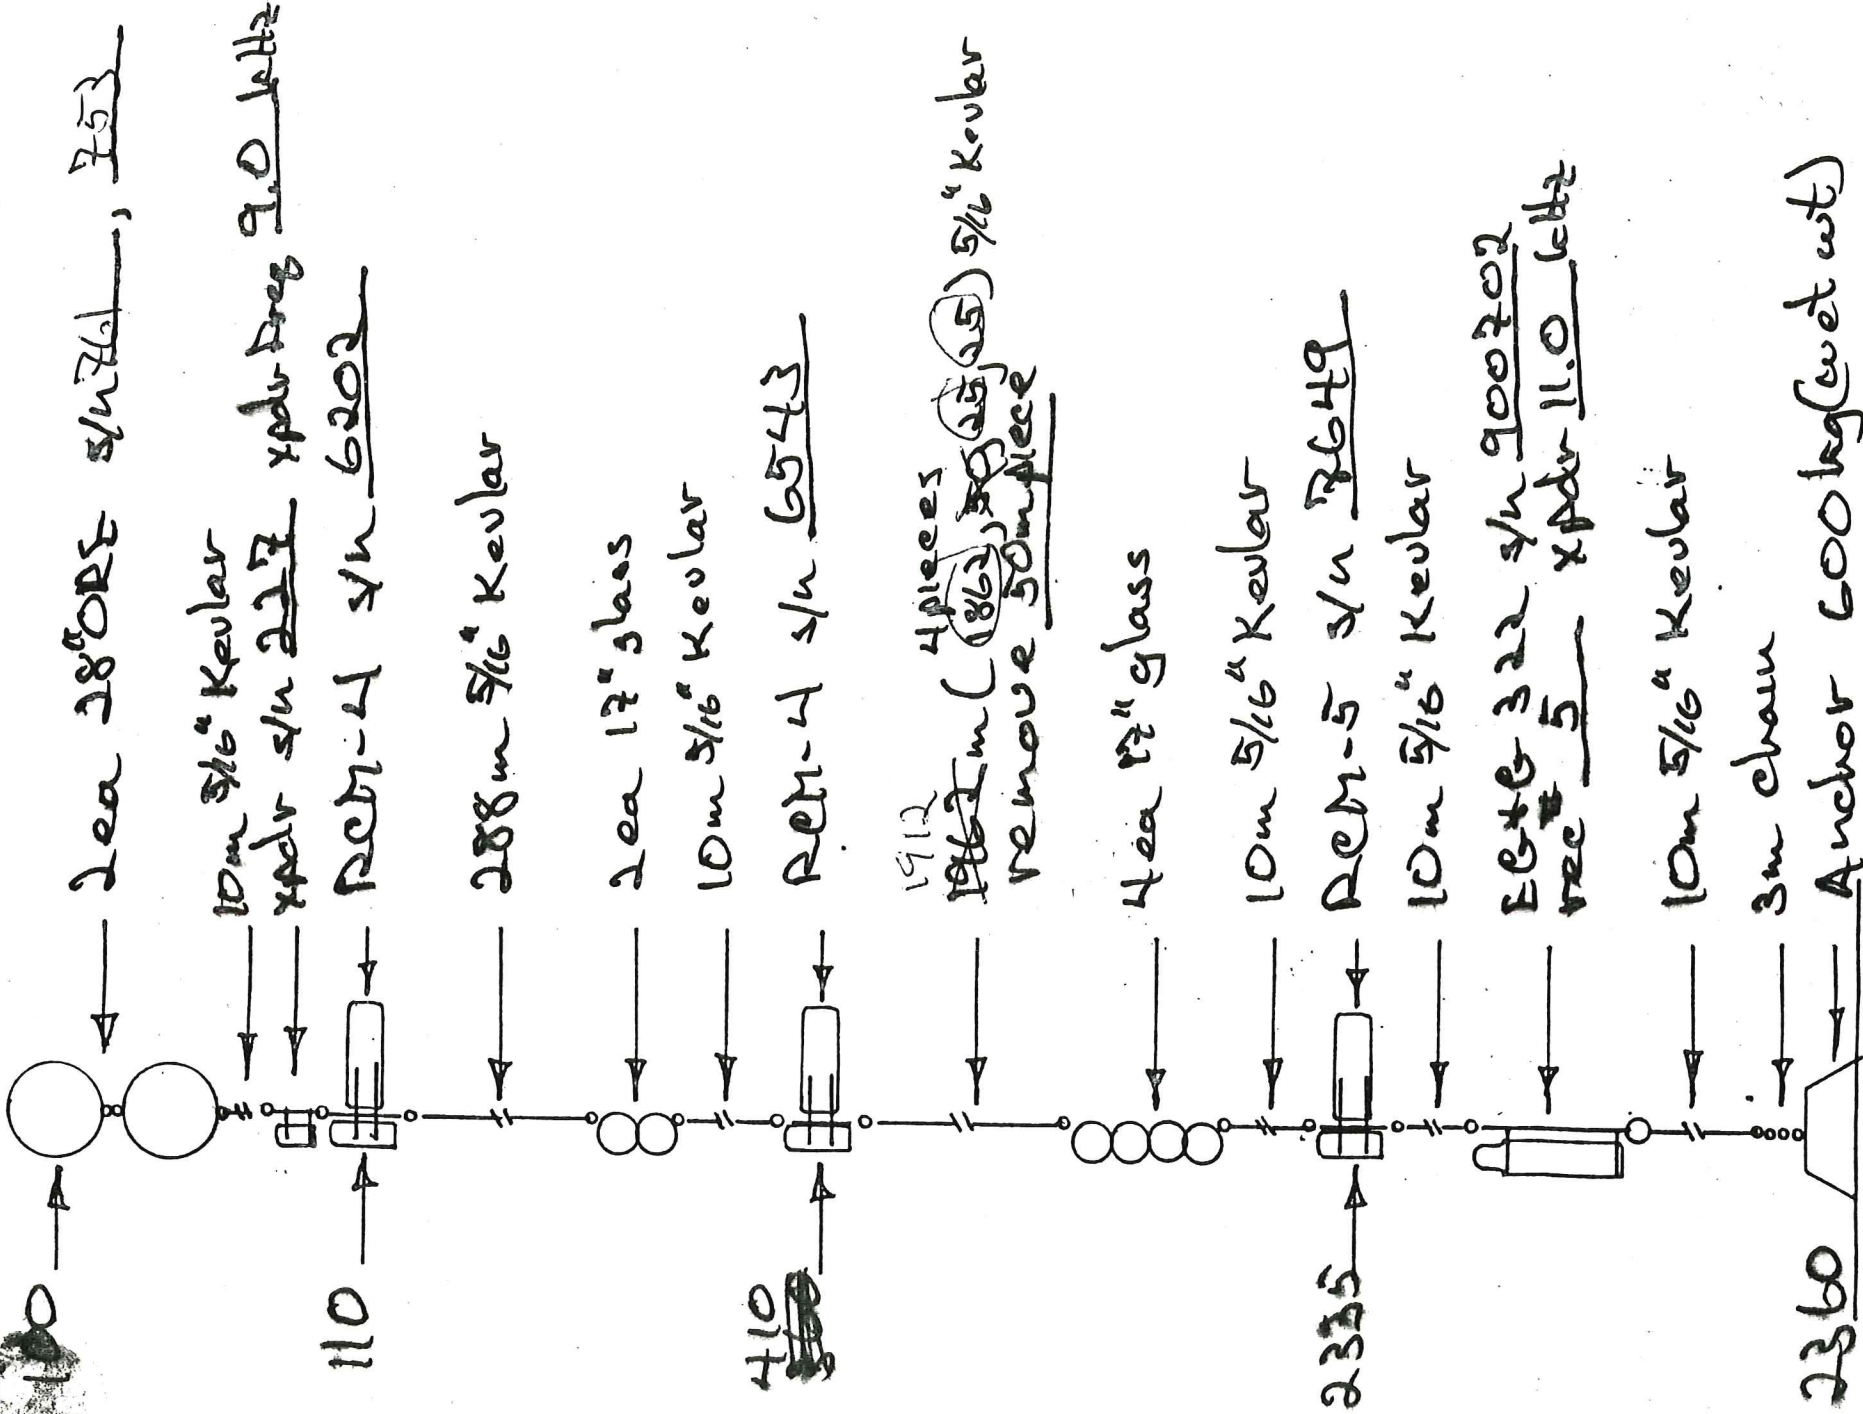 100
2ea 28" ORE s/n 761, 753
10m 5/16" Kevlar
xpdr s/n 227 xpdr freq 9.0 kHz
110
RCM-4 s/n 6202
288m 5/16" Kevlar
2ea 17" glass
10m 5/16" Kevlar
410
RCM-4 s/n 6543
1912
4 pieces
1962m (1862, 50, 25, 25) 5/16" Kevlar
remove 50m piece
4ea 17" glass
10m 5/16" Kevlar
2335
RCM-5 s/n 7649
10m 5/16" Kevlar
EG&G 322 s/n 900702
rec # 5 xpdr 11.0 kHz
10m 5/16" Kevlar
3m chain
2360
Anchor 600kg (wet wt)